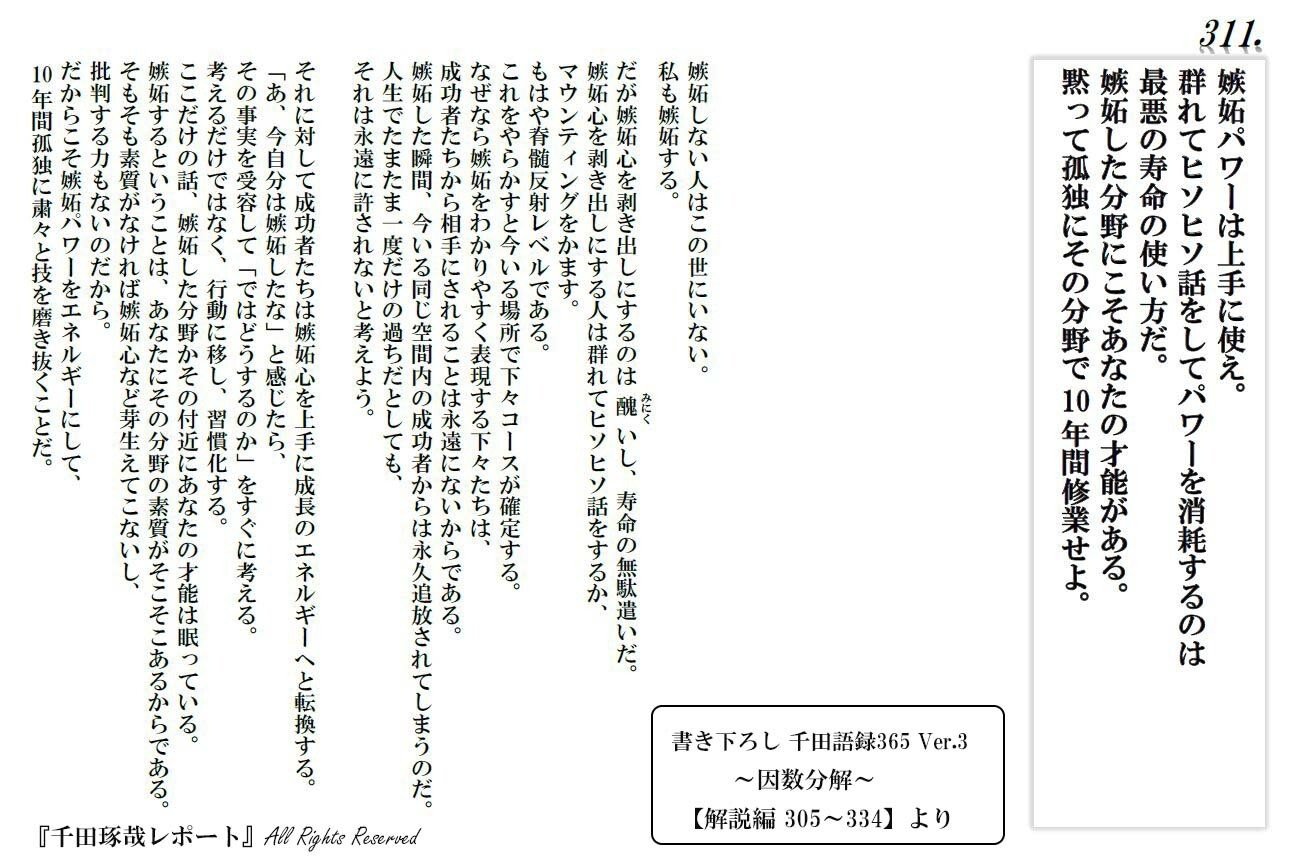 311.
嫉妬パワーは上手に使え。
群れてヒソヒソ話をしてパワーを消耗するのは
最悪の寿命の使い方だ。
嫉妬した分野にこそあなたの才能がある。
黙って孤独にその分野で10年間修業せよ。
嫉妬しない人はこの世にいない。
私も嫉妬する。
だが嫉妬心を剥き出しにするのは醜いし、寿命の無駄遣いだ。
みにく
嫉妬心を剥き出しにする人は群れてヒソヒソ話をするか、
マウンティングをかます。
もはや脊髄反射レベルである。
これをやらかすと今いる場所で下々コースが確定する。
なぜなら嫉妬をわかりやすく表現する下々たちは、
成功者たちから相手にされることは永遠にないからである。
嫉妬した瞬間、今いる同じ空間内の成功者からは永久追放されてしまうのだ。
人生でたまたま一度だけの過ちだとしても、
それは永遠に許されないと考えよう。
それに対して成功者たちは嫉妬心を上手に成長のエネルギーへと転換する。
「あ、今自分は嫉妬したな」と感じたら、
その事実を受容して「ではどうするのか」をすぐに考える。
考えるだけではなく、行動に移し、習慣化する。
ここだけの話、嫉妬した分野かその付近にあなたの才能は眠っている。
嫉妬するということは、あなたにその分野の素質がそこそこあるからである。
そもそも素質がなければ嫉妬心など芽生えてこないし、
批判する力もないのだから。
だからこそ嫉妬パワーをエネルギーにして、
10年間孤独に粛々と技を磨き抜くことだ。
書き下ろし 千田語録365 Ver.3
～因数分解～
【解説編 305～334】より
『千田琢哉レポート』All Rights Reserved